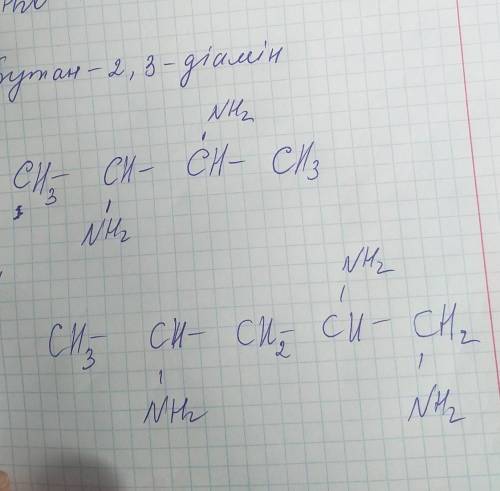 бутан-2,3-діамін
NH₂
CH₃- CH- CH- CH₃
NH₂
NH₂
CH₃- CH- CH₂- CH- CH₂
NH₂ NH₂